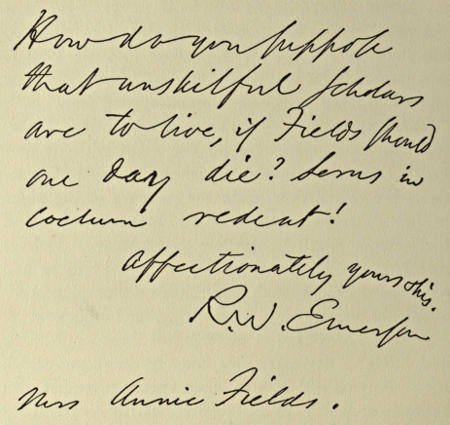 How do you suppose
that unskilful scholars
are to live, if Fields should
one day die? Serus in
coelum redeat!
Affectionately yours this.
R. W. Emerson
Mrs Annie Fields.